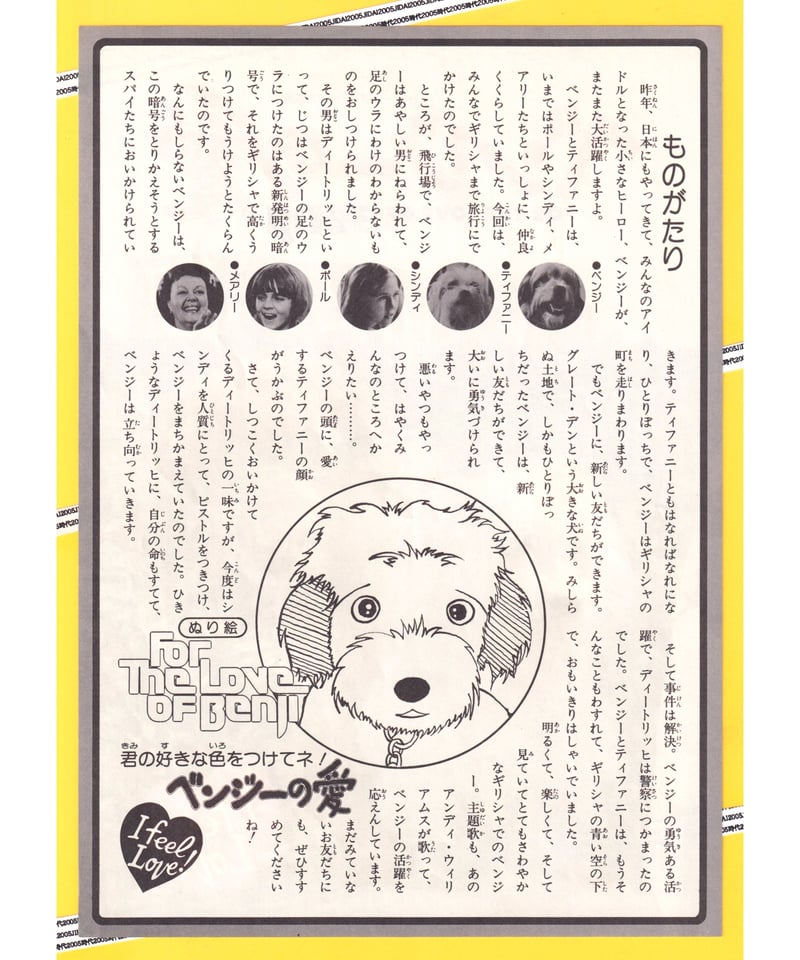 ものがたり
昨年、日本にもやってきて、みんなのアイ
ドルとなった小さなヒーロー、ベンジーが、
またまた大活躍しますよ。
ベンジーとティファニーは、
いまではポールやシンディ、メ
アリーたちといっしょに、仲良
くくらしていました。今回は、
みんなでギリシャまで旅行にで
かけたのでした。
ところが、飛行場で、ベンジ
ーはあやしい男にねらわれて、
足のウラにわけのわからないも
のをおしつけられました。
その男はディートリッヒとい
って、じつはベンジーの足のウ
ラにつけたのはある新発明の暗
号で、それをギリシャで高くう
りつけてもうけようとたくらん
でいたのです。
なんにもしらないベンジーは、
この暗号をとりかえそうとする
スパイたちにおいかけられてい
●ベンジー
●ティファニー
●シンディ
●ポール
●メアリー
きます。ティファニーともはなればなれにな
り、ひとりぼっちで、ベンジーはギリシャの
町を走りまわります。
でもベンジーに、新しい友だちができます。
グレート・デンという大きな犬です。みしら
ぬ土地で、しかもひとりぼっ
ちだったベンジーは、新
しい友だちができて、
大いに勇気づけられ
ます。
悪いやつもやっ
つけて、はやくみ
んなのところへか
えりたい………。
ベンジーの頭に、愛
するティファニーの顔
がうかぶのでした。
さて、しつこくおいかけて
くるディートリッヒの一味ですが、今度はシ
ンディを人質にとって、ピストルをつきつけ、
ベンジーをまちかまえていたのでした。ひき
ょうなディートリッヒに、自分の命もすてて、
ベンジーは立ち向っていきます。
そして事件は解決。ベンジーの勇気ある活
躍で、ディートリッヒは警察につかまったの
でした。ベンジーとティファニーは、もうそ
んなこともわすれて、ギリシャの青い空の下
で、おもいきりはしゃいでいました。
明るくて、楽しくて、そして
見ていてとてもさわやか
なギリシャでのベンジ
ー。主題歌も、あの
アンディ・ウィリ
アムスが歌って、
ベンジーの活躍を
応えんしています。
まだみていな
いお友だちに
も、ぜひすす
めてください
ね！
ぬり絵
For
The Love
OF Benji
君の好きな色をつけてネ！
ベンジーの愛
I feel
Love!